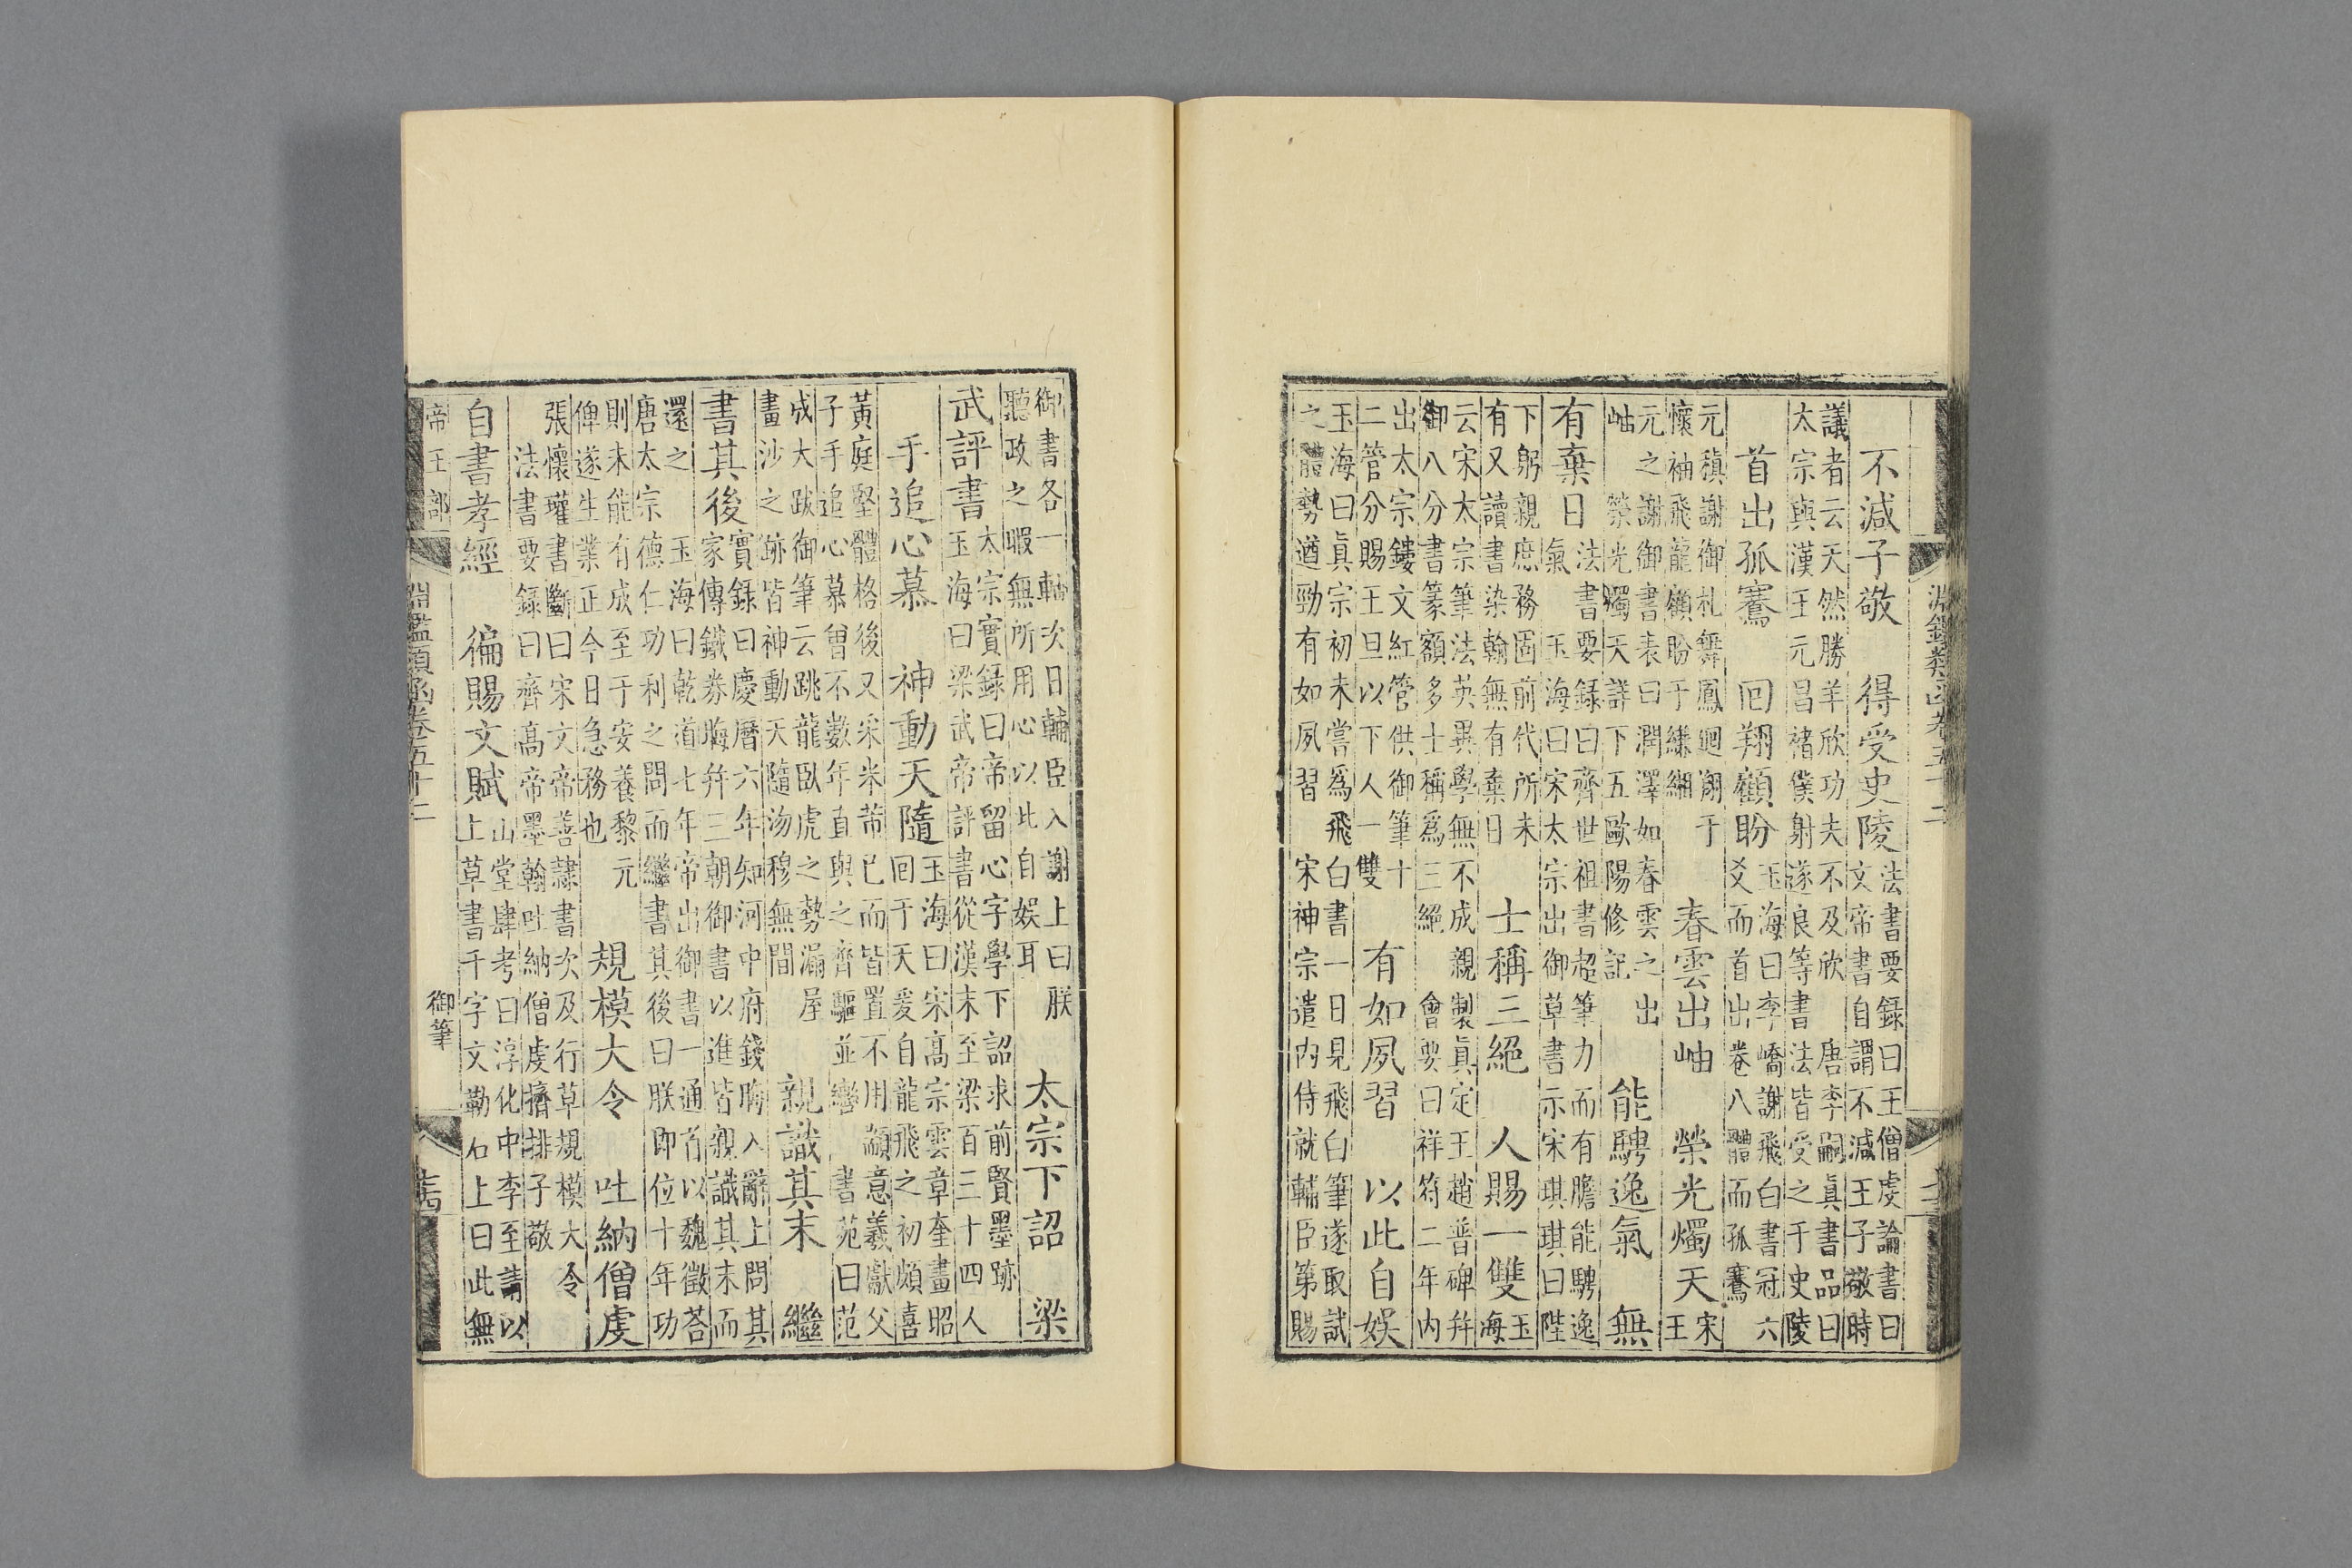 淵鑑類函卷五十二
不減子敬　得受史陵
法書要錄曰王僧虔論書曰
文帝書自謂不減王子敬時
議者云天然勝羊欣功夫不及欣　唐李嗣真書品曰
太宗與漢王元昌褚僕射遂良等書法皆受之于史陵
首出孤騫　囘翔顧盼
玉海曰李嶠謝飛白書冠六
爻而首出卷八體而孤騫
元稹謝御札舞鳳廻翔于
懷袖飛龍顧盼于縑緗
春雲出岫　榮光燭天
宋
王
元之謝御書表曰潤澤如春雲之出
岫　榮光燭天詳下五歐陽修記
能騁逸氣　無
有棄日
法書要錄曰齊世祖書超筆力而有膽能騁逸
氣　玉海曰宋太宗出御草書示宋琪琪曰陛
下躬親庶務固前代所未
有又讀書染翰無有棄日
士稱三絕　人賜一雙
玉
海
云宋太宗筆法英異學無不成親製眞定王趙普碑幷
御八分書篆額多士稱爲三絕　會要曰祥符二年內
出太宗鏤文紅管供御筆十
二管分賜王旦以下人一雙
有如夙習　以此自娛
玉海曰眞宗初未嘗爲飛白書一日見飛白筆遂取試
之體勢遒勁有如夙習　宋神宗遣內侍就輔臣第賜
御書各一軸次日輔臣入謝上曰朕
聽政之暇無所用心以此自娛耳
太宗下詔　梁
武評書
太宗實錄曰帝留心字學下詔求前賢墨跡
玉海曰梁武帝評書從漢末至梁百三十四人
手追心慕　神動天隨
玉海曰宋高宗雲章奎畫昭
囘于天爰自龍飛之初頗喜
黃庭堅體格後又采米芾已而皆置不用顓意羲獻父
子手追心慕曾不數年直與之齊驅並轡　書苑曰范
成大跋御筆云跳龍臥虎之勢漏屋
畫沙之跡皆神動天隨沕穆無間
親識其末　繼
書其後
實錄曰慶曆六年知河中府錢晦入辭上問其
家傳鐵券晦幷三朝御書以進皆親識其末而
還之　玉海曰乾道七年帝出御書一通首以魏徵荅
唐太宗德仁功利之問而繼書其後曰朕即位十年功
則未能有成至于安養黎元
俾遂生業正今日急務也
規模大令　吐納僧虔
張懷瓘書斷曰宋文帝善隸書次及行草規模大令
法書要錄曰齊高帝墨翰吐納僧虔擠排子敬
自書孝經　徧賜文賦
山堂肆考曰淳化中李至請以
上草書千字文勒石上曰此無
帝王部
淵鑑類函卷五十二
御筆